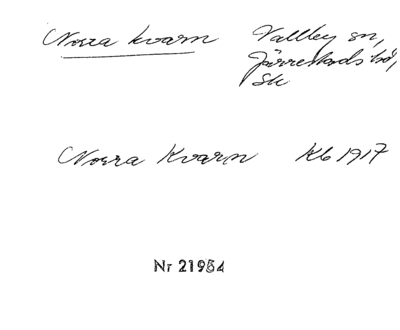 Norra kvarn Vallby sn,
Järrestads hd,
Sk
Norra Kvarn Kb 1917
Nr 21954